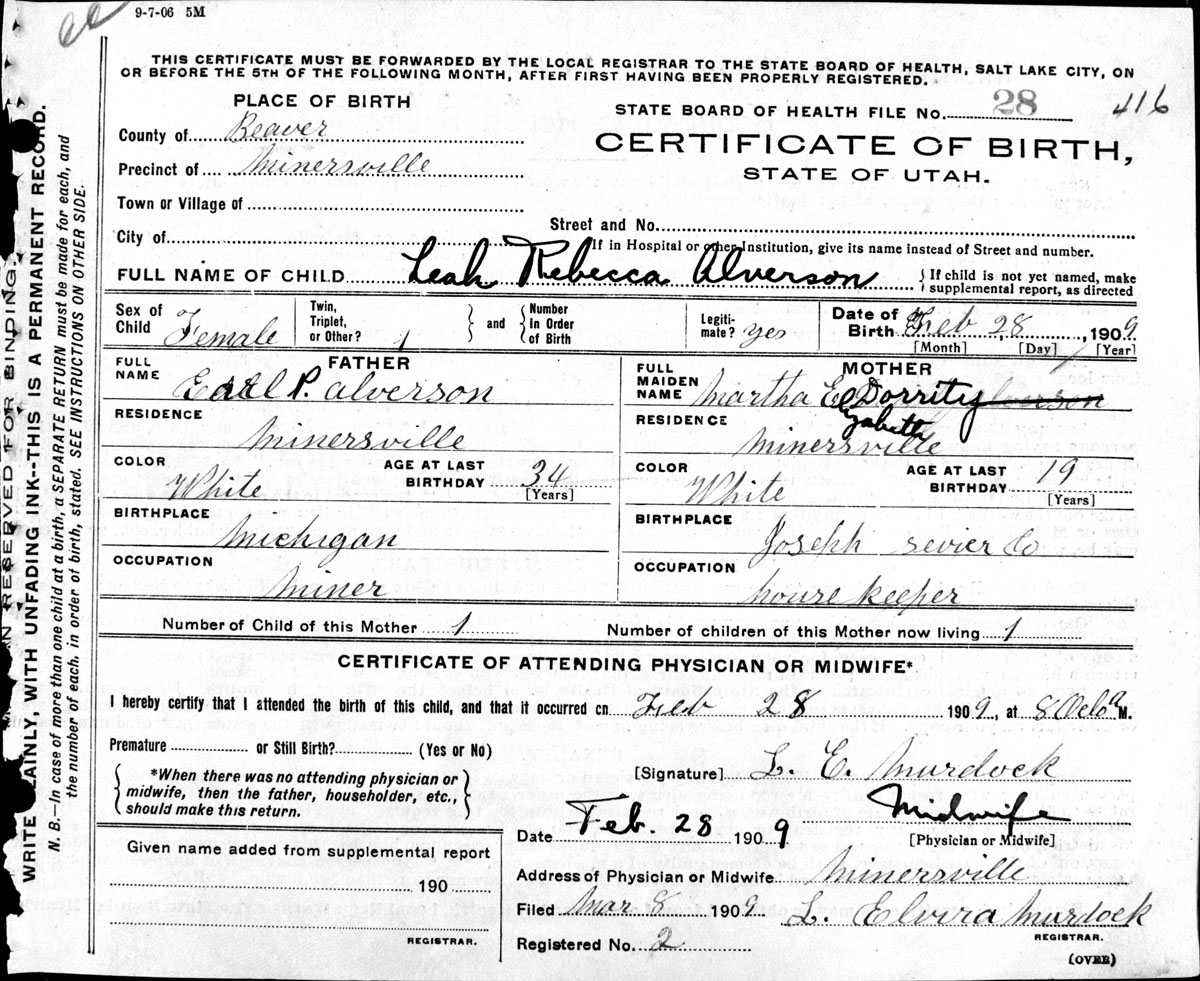 9-7-06 5M
THIS CERTIFICATE MUST BE FORWARDED BY THE LOCAL REGISTRAR TO THE STATE BOARD OF HEALTH, SALT LAKE CITY, ON
OR BEFORE THE 5TH OF THE FOLLOWING MONTH, AFTER FIRST HAVING BEEN PROPERLY REGISTERED.
PLACE OF BIRTH
STATE BOARD OF HEALTH FILE No. 28 416
County of Beaver
CERTIFICATE OF BIRTH,
Precinct of Minersville
STATE OF UTAH.
Town or Village of
Street and No.
City of
If in Hospital or other Institution, give its name instead of Street and number.
FULL NAME OF CHILD Leah Rebecca Alverson
If child is not yet named, make
supplemental report, as directed
Sex of Child Female
Twin, Triplet, or Other? 1
and
Number in Order of Birth
Legiti-mate? yes
Date of Birth Feb 28, 1909
[Month] [Day] [Year]
FATHER
FULL NAME Earl P. Alverson
RESIDENCE
Minersville
COLOR White
AGE AT LAST BIRTHDAY 34
[Years]
BIRTHPLACE
Michigan
OCCUPATION
miner
MOTHER
FULL MAIDEN NAME Martha Elizabeth Dorrity Alverson
RESIDENCE
Minersville
COLOR White
AGE AT LAST BIRTHDAY 19
[Years]
BIRTHPLACE
Joseph sevier Co
OCCUPATION
house keeper
Number of Child of this Mother 1
Number of children of this Mother now living 1
CERTIFICATE OF ATTENDING PHYSICIAN OR MIDWIFE*
I hereby certify that I attended the birth of this child, and that it occurred on Feb 28 1909, at 8 Oclo a M.
Premature or Still Birth? (Yes or No)
*When there was no attending physician or
midwife, then the father, householder, etc.,
should make this return.
[Signature] L. E. Murdock
Midwife
[Physician or Midwife]
Date Feb. 28 1909
Given name added from supplemental report
190
REGISTRAR.
Address of Physician or Midwife Minersville
Filed Mar 8 1909 L. Elvira Murdock
REGISTRAR.
Registered No. 2
(OVER)
RESERVED FOR BINDING
WRITE PLAINLY, WITH UNFADING INK--THIS IS A PERMANENT RECORD.
N. B.—In case of more than one child at a birth, a SEPARATE RETURN must be made for each, and
the number of each, in order of birth, stated. SEE INSTRUCTIONS ON OTHER SIDE.